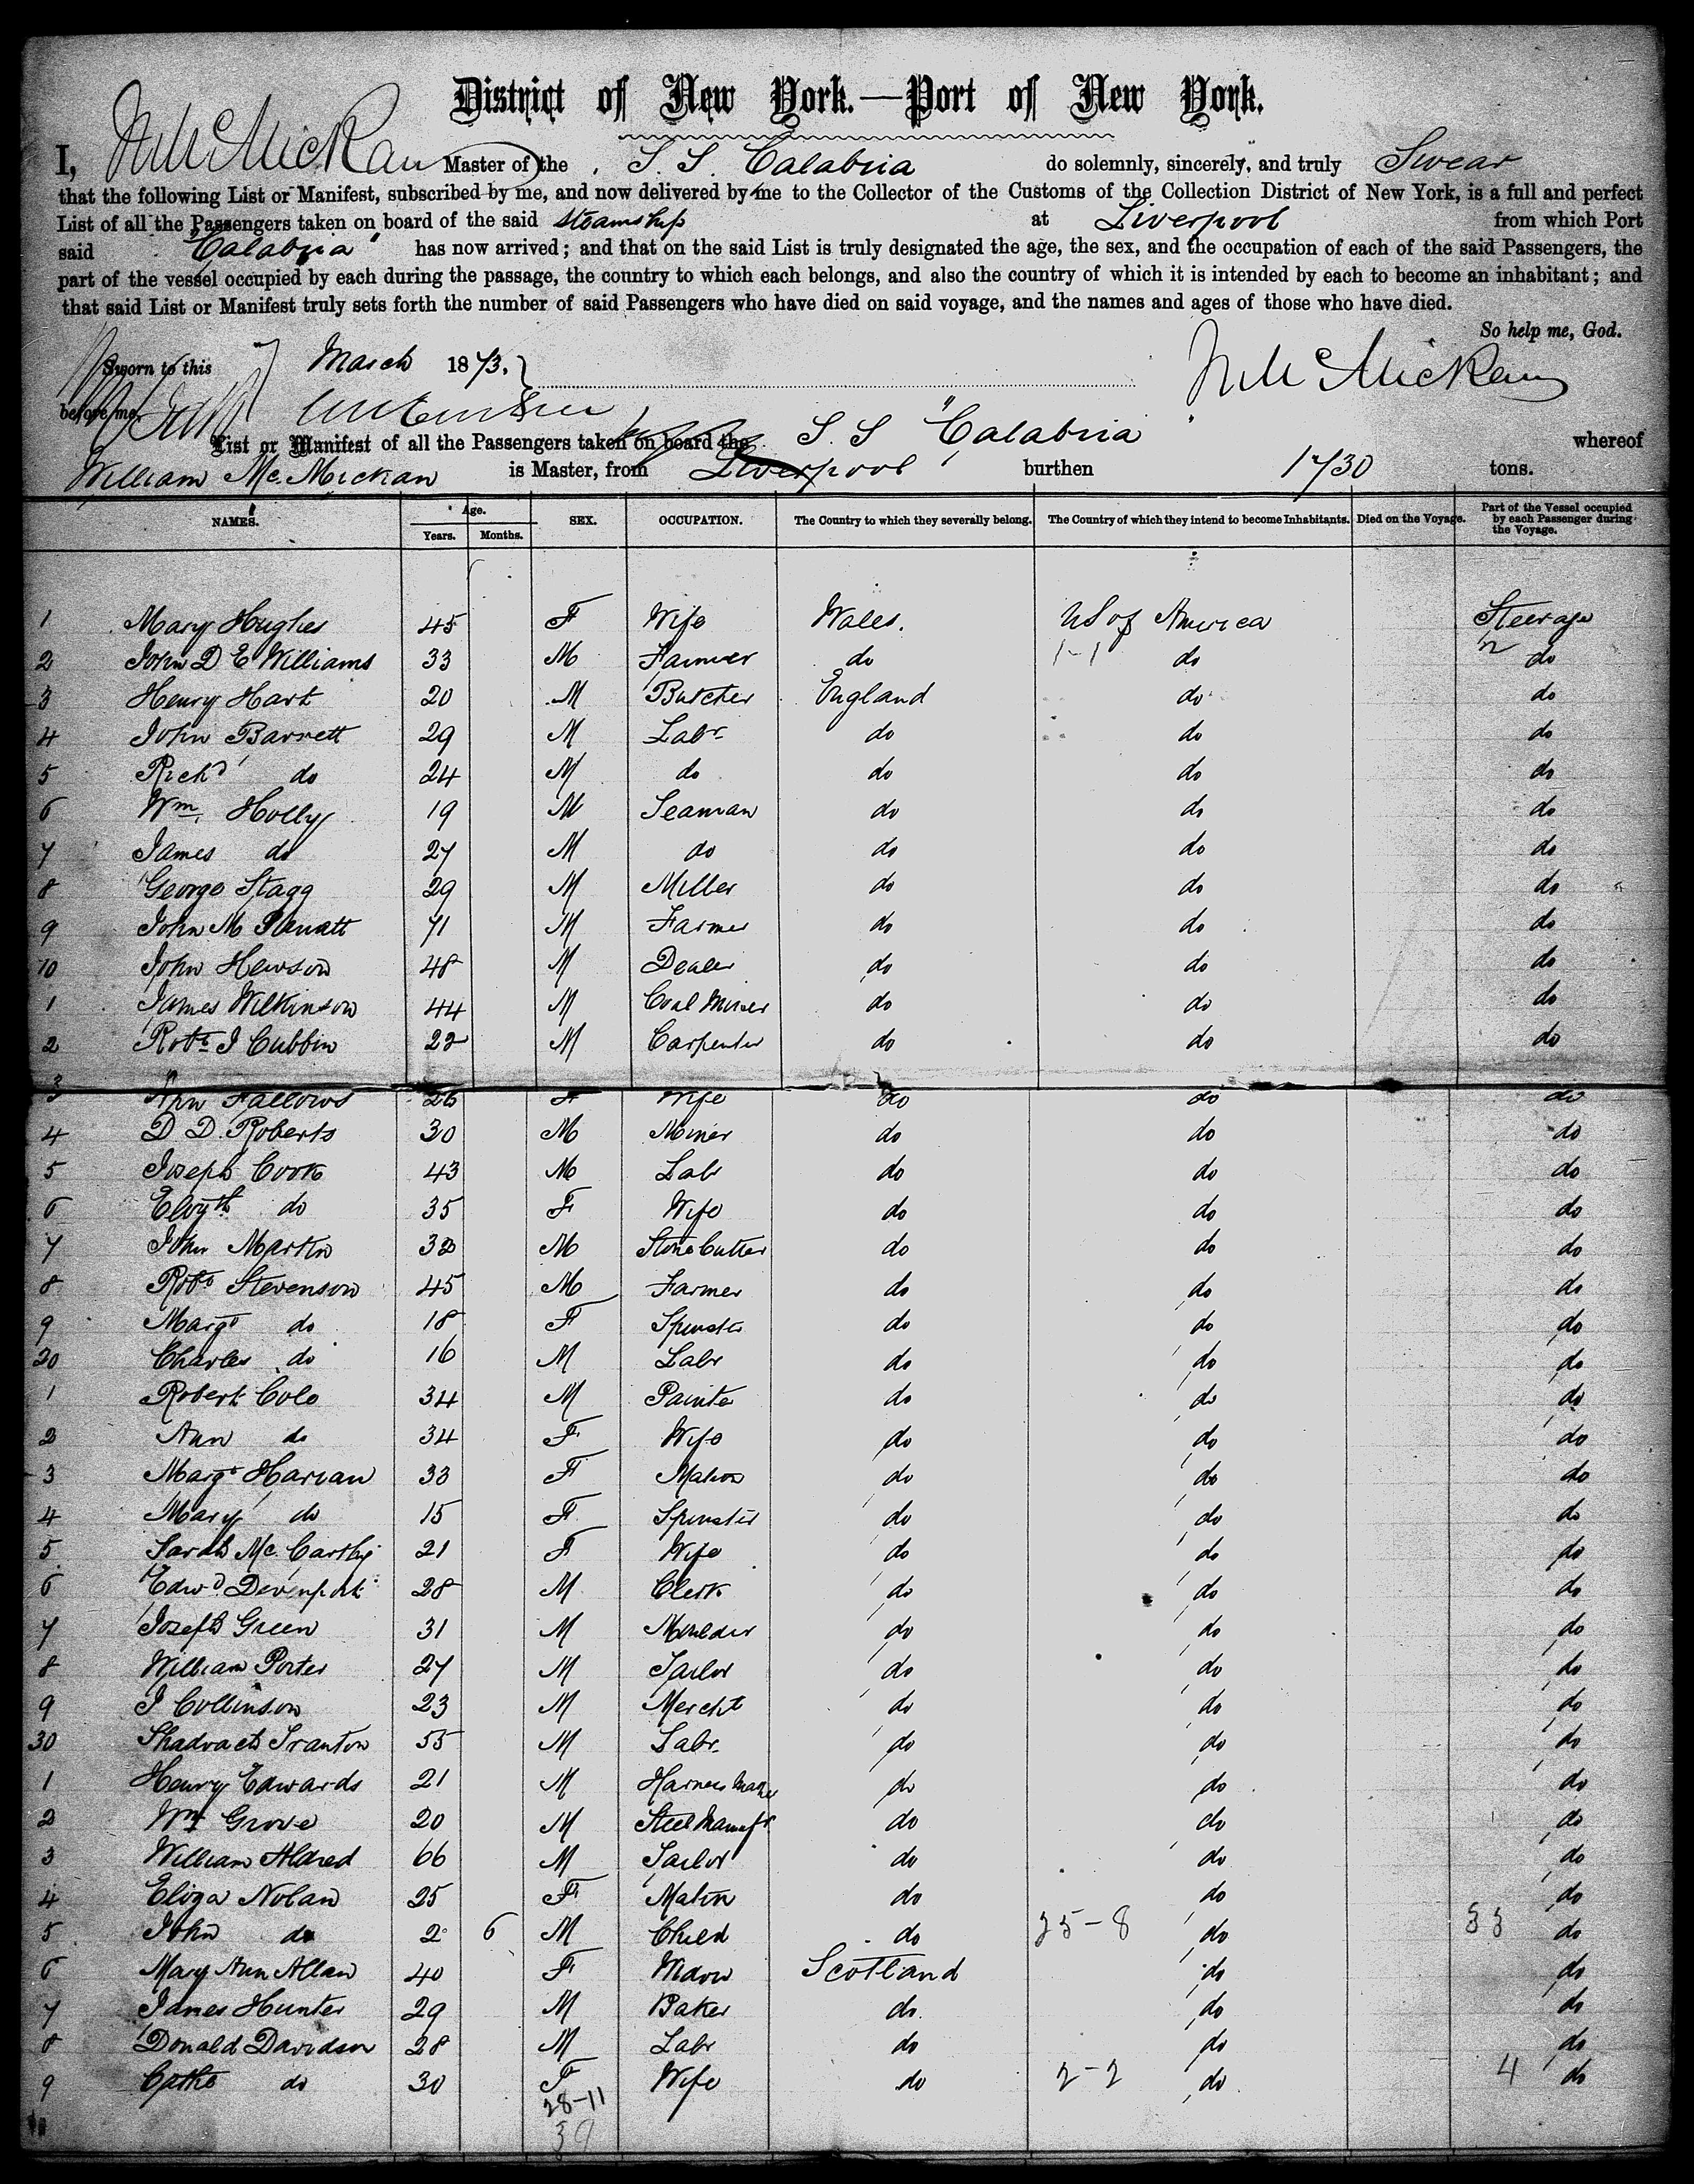 District of New York.—Port of New York.
I, Wm McMickan Master of the S. S. Calabria do solemnly, sincerely, and truly Swear
that the following List or Manifest, subscribed by me, and now delivered by me to the Collector of the Customs of the Collection District of New York, is a full and perfect
List of all the Passengers taken on board of the said steamship at Liverpool from which Port
said "Calabria" has now arrived; and that on the said List is truly designated the age, the sex, and the occupation of each of the said Passengers, the
part of the vessel occupied by each during the passage, the country to which each belongs, and also the country of which it is intended by each to become an inhabitant; and
that said List or Manifest truly sets forth the number of said Passengers who have died on said voyage, and the names and ages of those who have died.
So help me, God.
Sworn to this March 1873. Wm McMickan
before me
List or Manifest of all the Passengers taken on board the S. S "Calabria" whereof
William Mc.Mickan is Master, from Liverpool burthen 1730 tons.
NAMES. Age. Years. Months. SEX. OCCUPATION. The Country to which they severally belong. The Country of which they intend to become Inhabitants. Died on the Voyage. Part of the Vessel occupied by each Passenger during the Voyage.
1 Mary Hughes 45 F Wife Wales. US of America Steerage
2 John D E Williams 33 M Farmer do 1-1 do 2 do
3 Henry Hart 20 M Butcher England do do
4 John Barrett 29 M Labr do do do
5 Richd do 24 M do do do do
6 Wm Holly 19 M Seaman do do do
7 James do 27 M do do do do
8 George Stagg 29 M Miller do do do
9 John M 71 M Farmer do do do
10 John Hewson 48 M Dealer do do do
1 James Wilkinson 44 M Coal Miner do do do
2 Robt J Cubbin 22 M Carpenter do do do
3 Ann Fallows 26 F Wife do do do
4 D D. Roberts 30 M Miner do do do
5 Joseph Cook 43 M Labr do do do
6 Elizth do 35 F Wife do do do
7 John Martin 32 M Stone Cutter do do do
8 Robt Stevenson 45 M Farmer do do do
9 Margt do 18 F Spinster do do do
20 Charles do 16 M Labr do do do
1 Robert Cole 34 M Painter do do do
2 Ann do 34 F Wife do do do
3 Margt Harian 33 F Matron do do do
4 Mary do 15 F Spinster do do do
5 Sarah Mc.Carthy 21 F Wife do do do
6 Edwd Devenport 28 M Clerk do do do
7 Joseph Green 31 M Moulder do do do
8 William Porter 27 M Tailor do do do
9 J Collinson 23 M Mercht do do do
30 Shadrach Tranton 55 M Labr. do do do
1 Henry Edwards 21 M Harness Maker do do do
2 Wm Grove 20 M Steel Manufr do do do
3 William Aldred 66 M Tailor do do do
4 Eliza Nolan 25 F Matron do do do
5 John do 2 6 M Child do 25-8 do 33 do
6 Mary Ann Allan 40 F Widow Scotland do do
7 James Hunter 29 M Baker do. do do
8 Donald Davidson 28 M Labr do do do
9 Cathe do 30 F Wife do 2-2 do 4 do
28-11
39